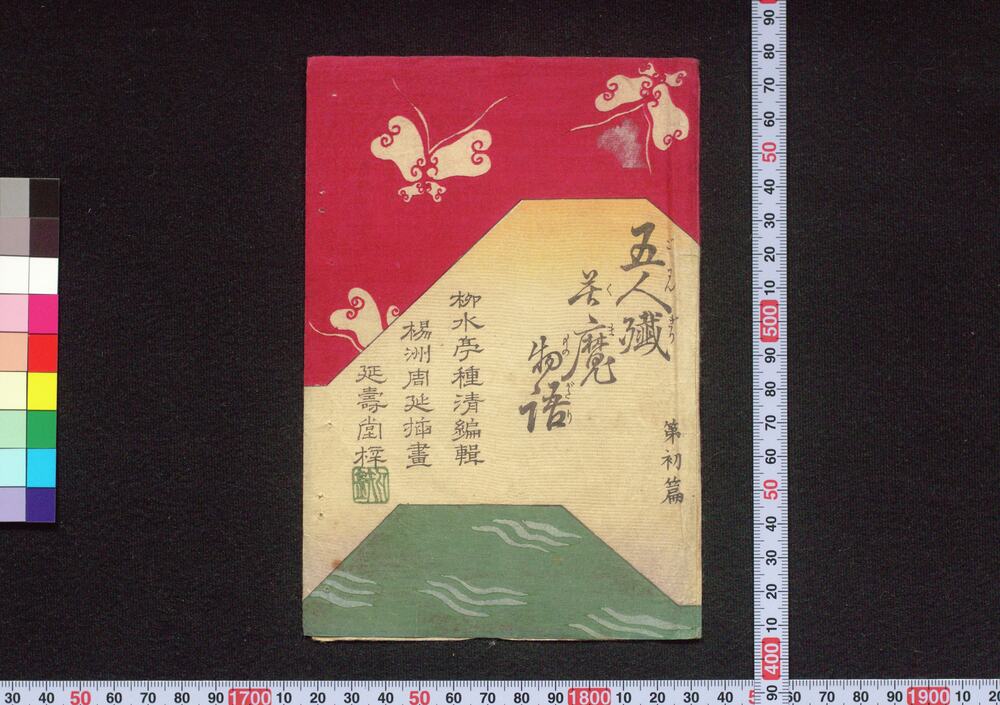 五人殲
ごにんぎり
苦魔
くま
物語
ものがたり
第初篇
柳水亭種清編輯
楊洲周延挿畫
延壽堂梓
90 80 70 60 50 40 30 20 10 500 90 80 70 60 50 40 30 20 10 400 90
30 40 50 60 70 80 90 1700 10 20 30 40 50 60 70 80 90 1800 10 20 30 40 60 70 80 90 1900 10